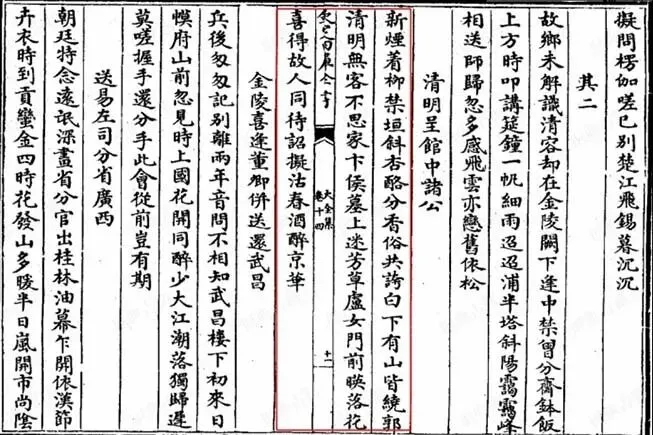 擬問楞伽嗟已別楚江飛錫暮沉沉
其二
故鄉未解識清容却在金陵闕下逢中禁曾分齋鉢飯
上方時叩講筵鐘一帆細雨迢迢浦半塔斜陽靄靄峰
相送師歸忽多感飛雲亦戀舊依松
清明呈館中諸公
新煙着柳禁垣斜杏酪分香俗共誇白下有山皆繞郭
清明無客不思家卞侯墓上迷芳草盧女門前暎落花
欽定四庫全書
大全集
卷十四
十二
喜得故人同待詔擬沽春酒醉京華
金陵喜逢董卿併送還武昌
兵後匆匆記別離兩年音問不相知武昌樓下初來日
幙府山前忽見時上國花開同醉少大江潮落獨歸遲
莫嗟握手還分手此會從前豈有期
送易左司分省廣西
朝廷特念遠氓深畫省分官出桂林油幕乍開依漢節
卉衣時到貢蠻金四時花發山多暖半日嵐開市尚陰